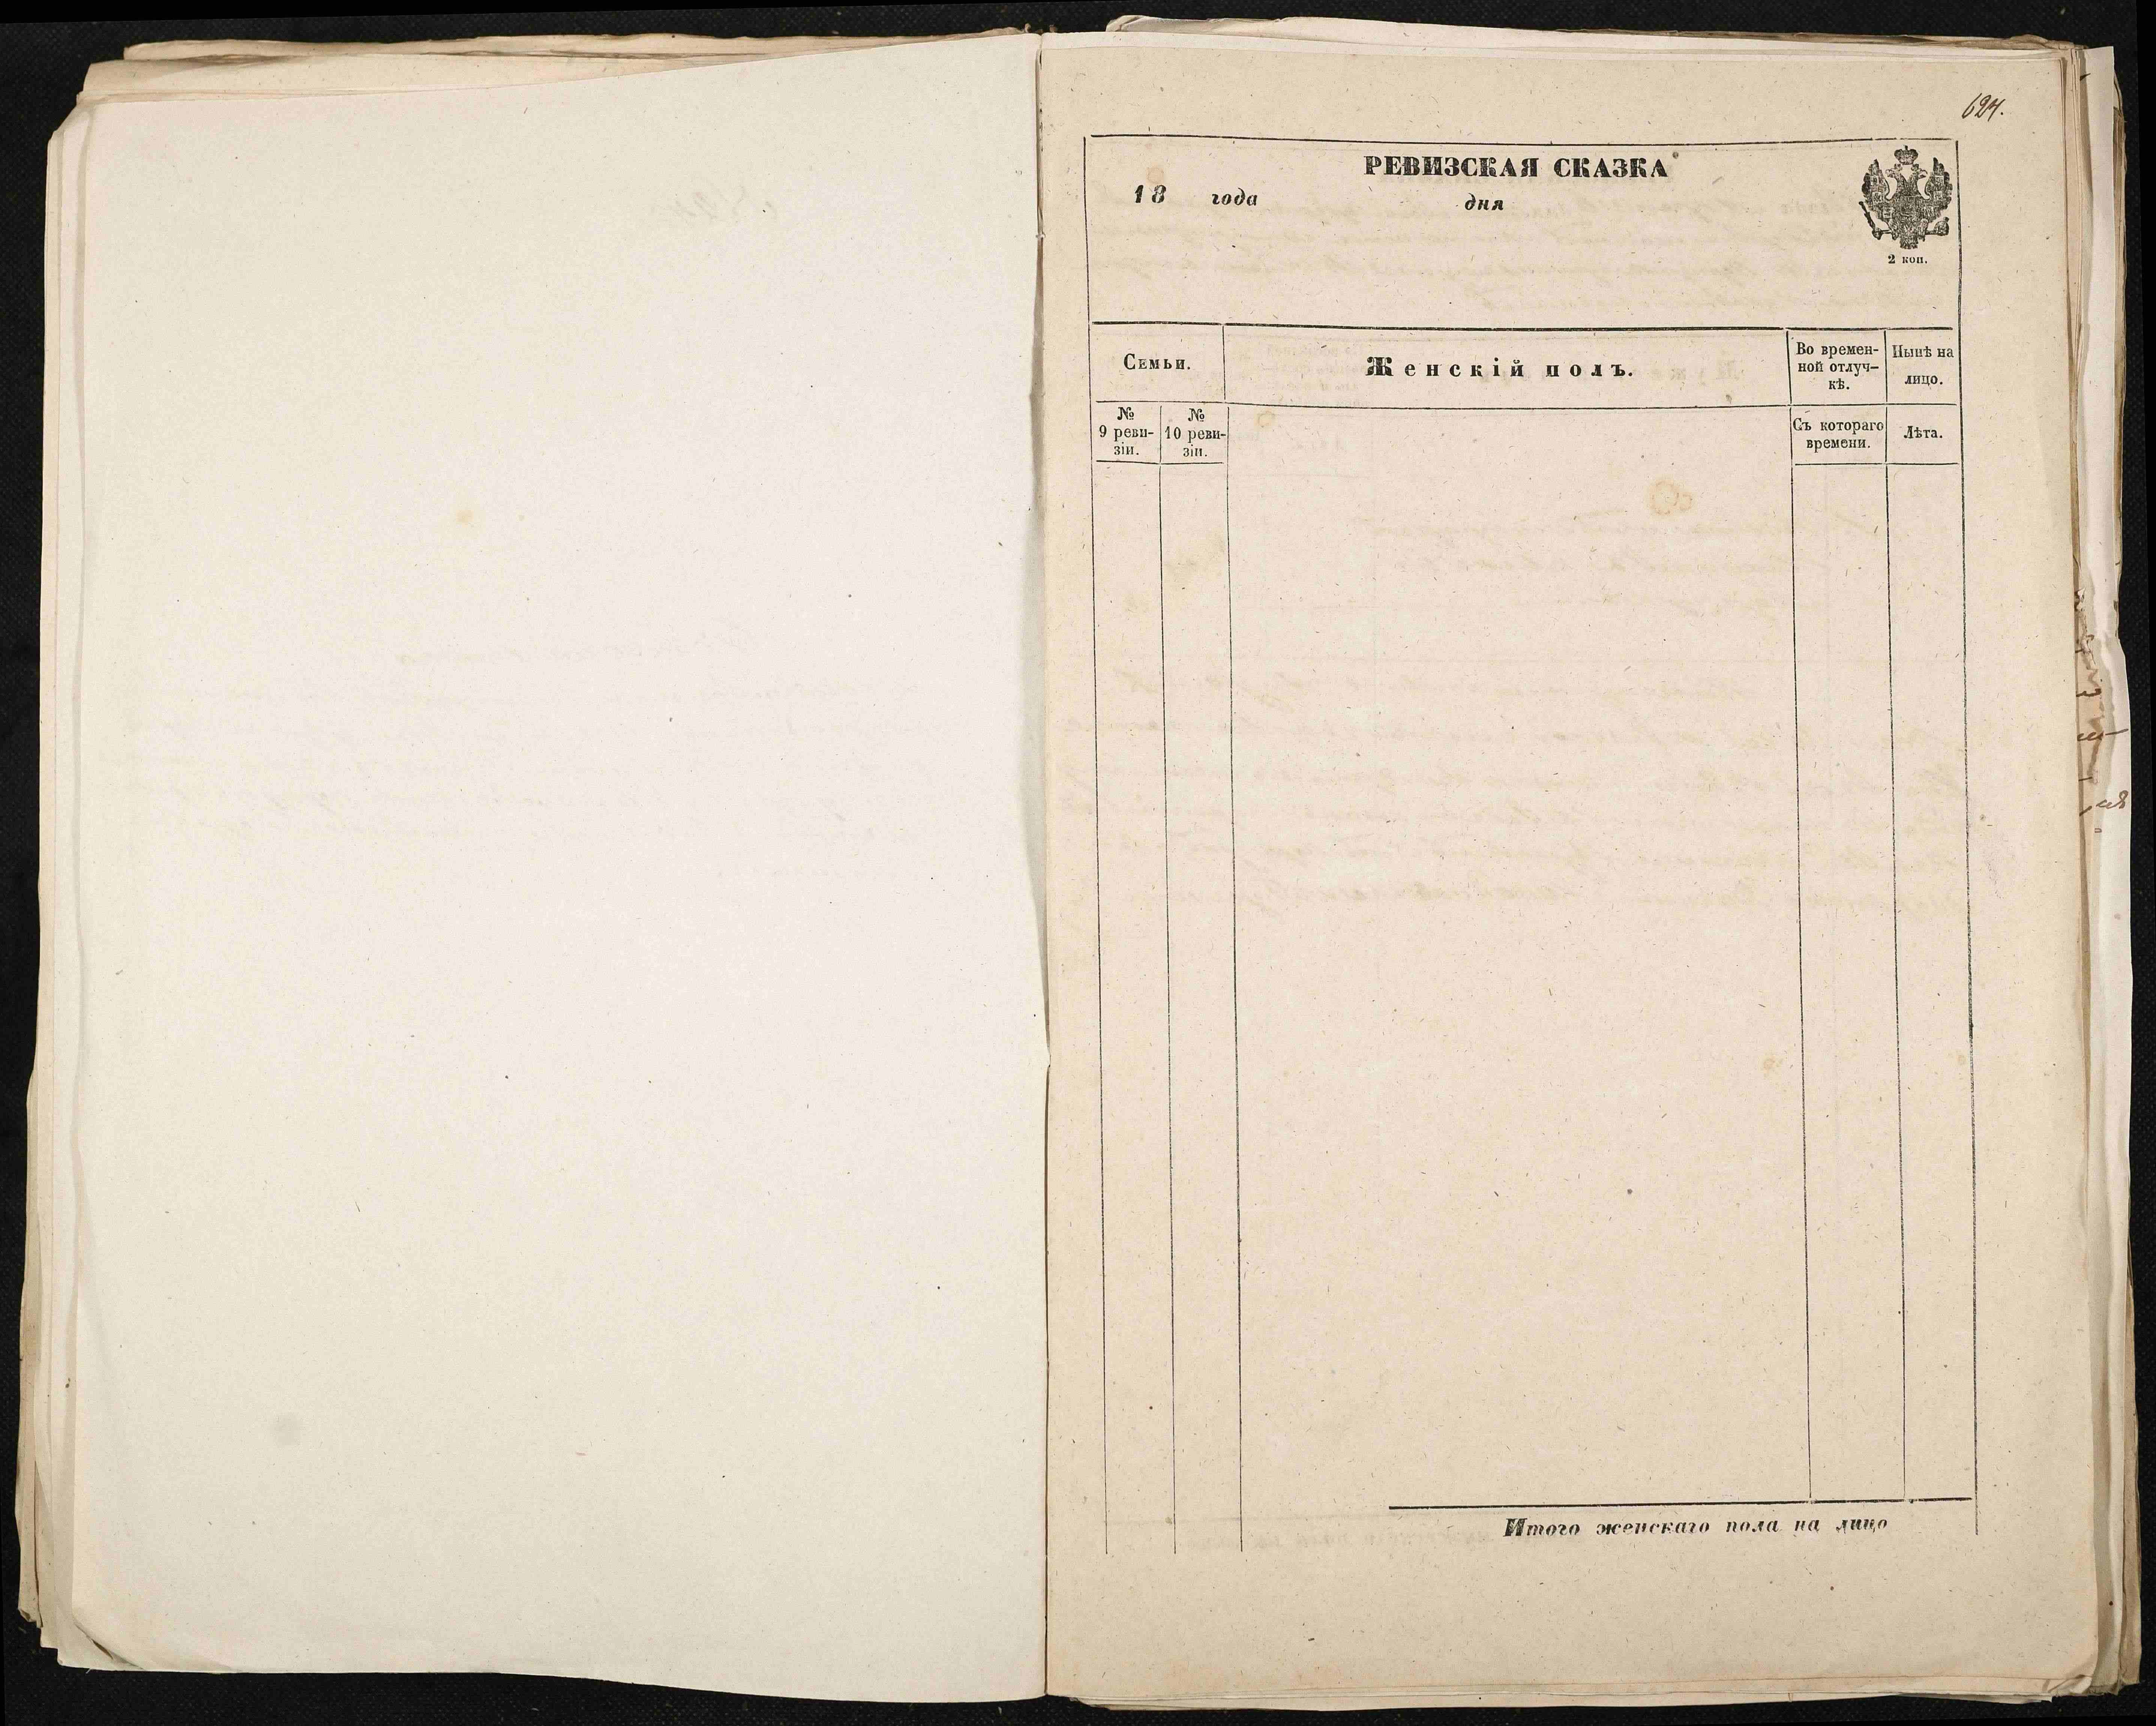 624.
РЕВИЗСКАЯ СКАЗКА
18 года дня
2 коп.
Семьи.
Женскій полъ.
Во времен-
ной отлуч-
кѣ.
Нынѣ на
лицо.
№
9 реви-
зіи.
№
10 реви-
зіи.
Съ котораго
времени.
Лѣта.
Итого женскаго пола на лицо